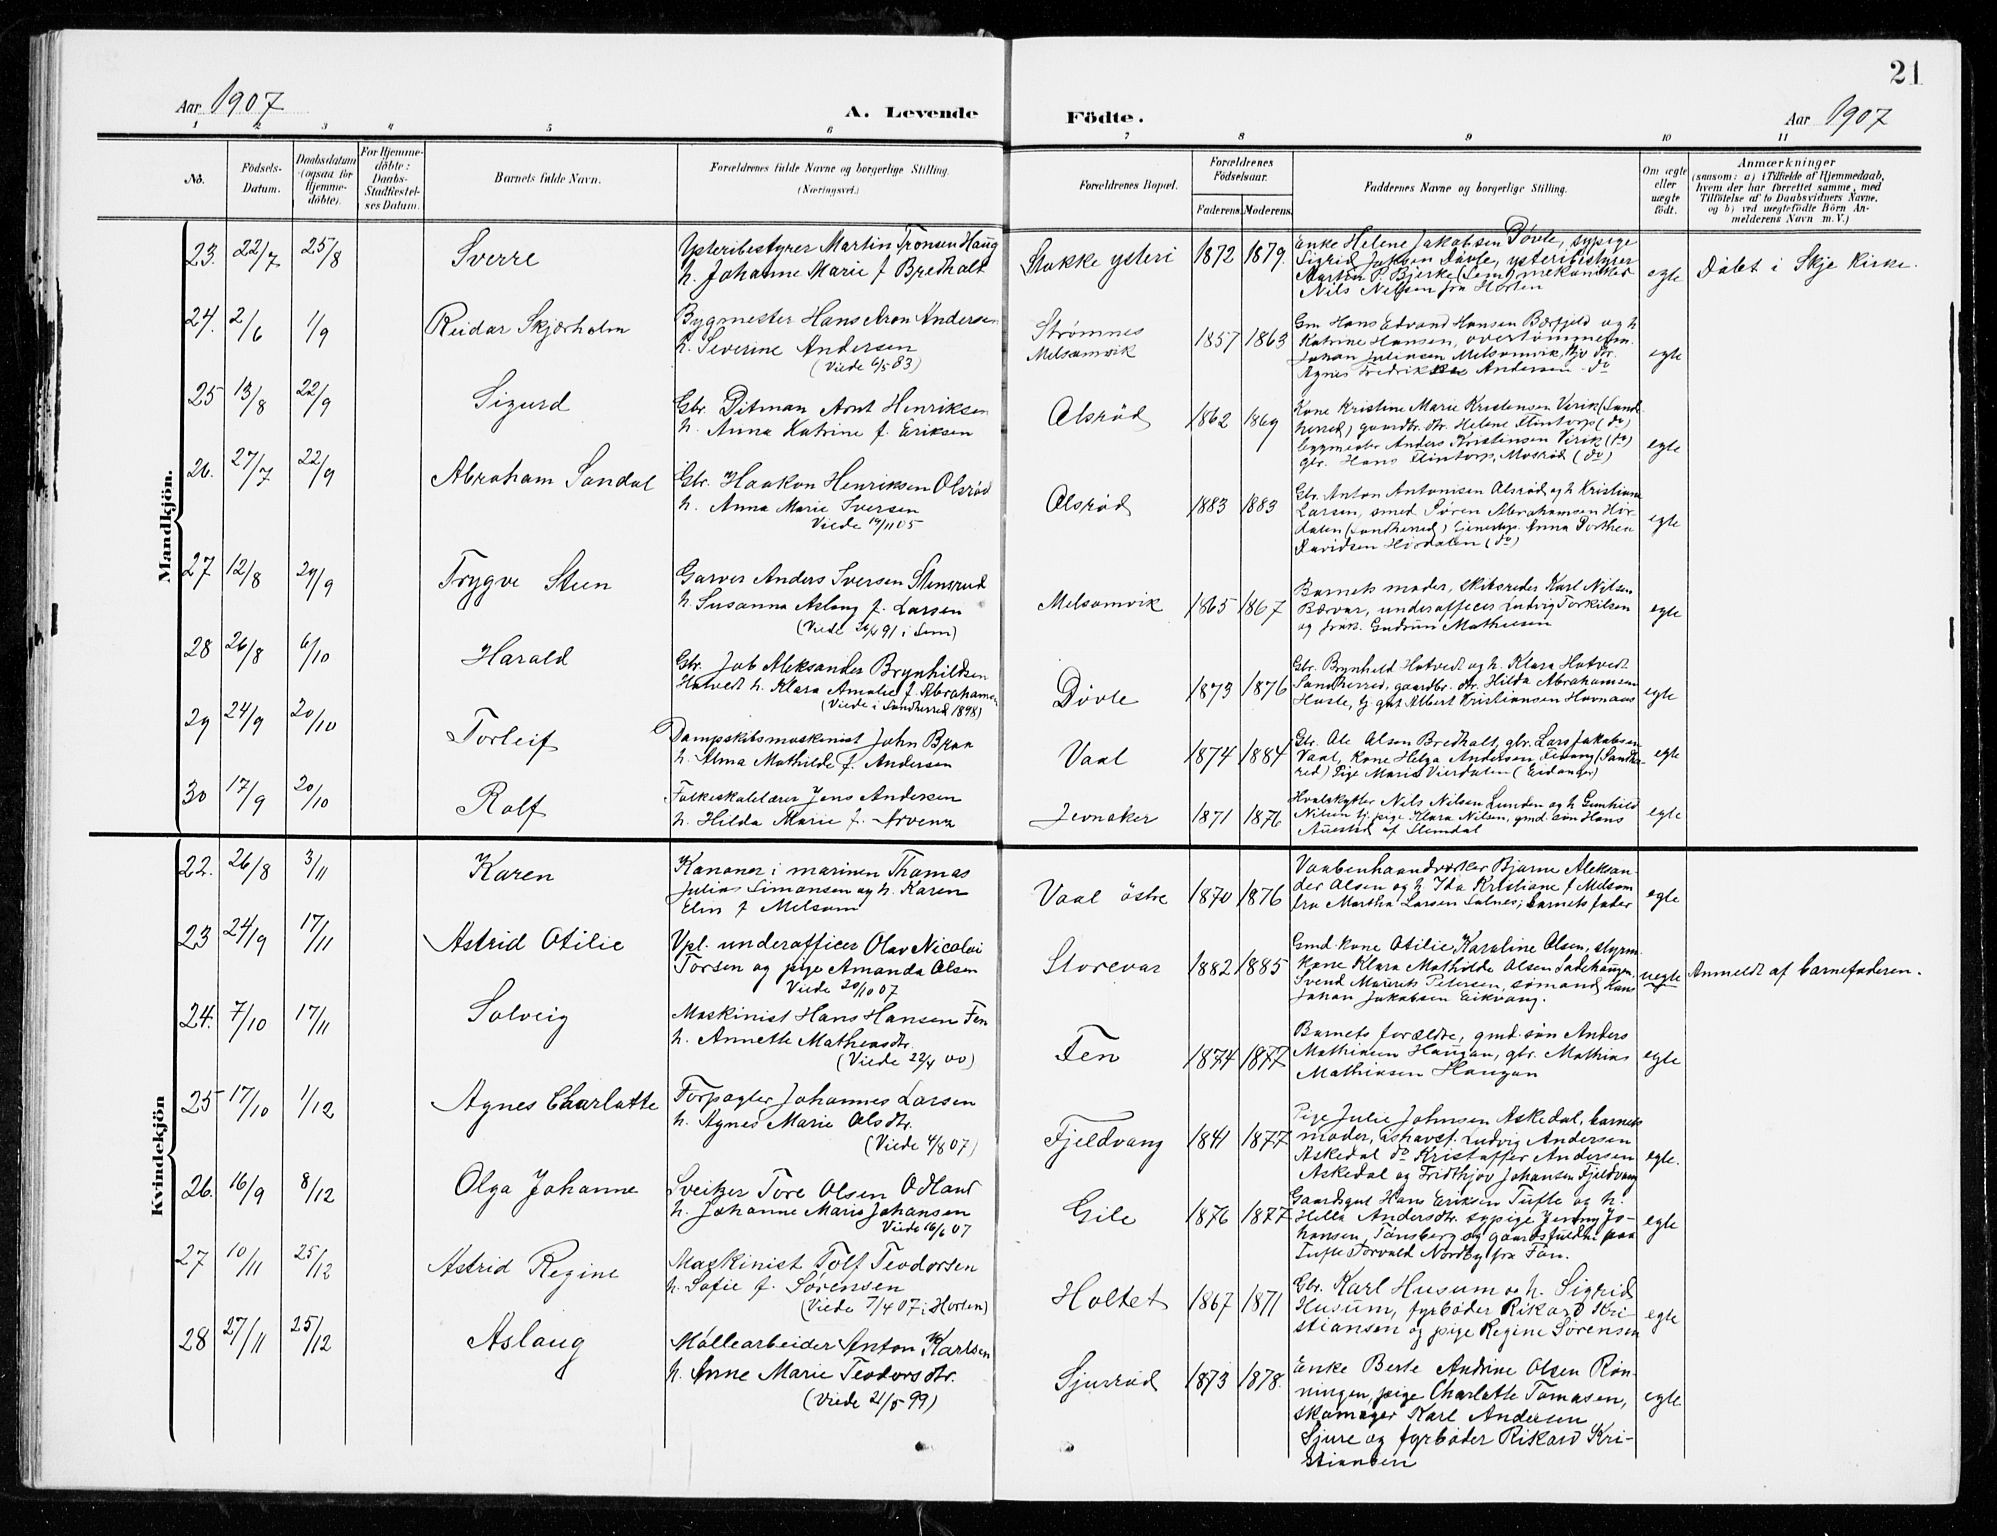 21
Aar 1907
A. Levende Födte.
Aar 1907
1 2 3 4 5 6 7 8 9 10 11
No.
Födsels-
Datum.
Daabsdatum
(ogsaa for
Hjemme-
döbte).
For Hjemme-
döbte:
Daabs-
Stadfæstel-
ses Datum.
Barnets fulde Navn.
Forældrenes fulde Navne og borgerlige Stilling.
(Næringsvei.)
Forældrenes Bopæl.
Forældrenes
Födselsaar.
Faderens Moderens
Faddernes Navne og borgerlige Stilling.
Om ægte
eller
uægte
født.
Anmærkninger
(saasom: a) i Tilfælde af Hjemmedaab,
hvem der har forrettet samme, med
Tilföielse af to Daabsvidners Navne,
og b) ved uægtefödte Börn An-
melderens Navn m. V.)
Mandkjön.
23. 22/7 25/8 Sverre
Ysteribestyrer Martin Tronsen Haug
h. Johanne Marie f Bredholt
Stokke ysteri 1872 1879.
Enke Helene Jakobsen Døvle, sypige
Sigrid Jakobsen Døvle, ysteribestyrer
Martin P. Bjerke (Sem) mekaniker
Nils Nilsen fra Horten
egte Døbt i Skje kirke.
24. 2/6 1/9 Reidar Skjærholm
Bygmester Hans Aron Andersen
h. Severine Andersen
(Viede 6/5 83)
Strømnes
Melsomvik
1857 1863
Gm Hans Edvard Hansen Bærfjeld og h
Katrine Hansen, overtømmerm.
Johan Juliusen Melsomvik,
Agnes Fredrikke Andersen do
egte
25 13/8 22/9 Sigurd
Gbr. Ditman Arnt Henriksen
h. Anna Katrine f. Eriksen
Olsrød 1862 1869
Kone Kristine Marie Kristensen Virik (Sande
herred) gaardbr. dtr. Helene Flintorp (do)
bygmester Anders Kristensen Virik (do)
gbr. Hans Flintorp, Mosrød (do)
egte
26. 27/7 22/9 Abraham Sandal
Gbr. Haakon Henriksen Olsrød
h. Anna Marie Iversen
Viede 19/11 05
Olsrød 1883 1883
Gbr. Anton Antonisen Olsrød og h Kristiane
Larsen, smed Søren Abrahamsen Hør-
dalen (Sandherred) tjenestpg. Anna Dorthea
Davidsen Hørdalen (do)
egte
27 12/8 29/9 Trygve Steen
Garver Anders Iversen Stensrud
h. Susanna Aslaug f. Larsen
(Viede 26/4 91 i Sem)
Melsomvik 1865 1867
Barnets moder, skibsreder Karl Nilsen
Bævar, underofficer Ludvig Torkilsen
og frøk. Gudrun Mathisen
egte
28 26/8 6/10 Harald
Gbr. Job Aleksander Brynhildsen
Hotvedt h. Klara Amalie f. Abrahamsen
(Viede i Sandherred 1898)
Døvle 1873 1876
Gbr. Brynhild Hotvedt og h. Klara Hotvedt
Sandherred, gaardbr. dtr. Hilda Abrahamsen
Hasle, tj. gut Albert Kristiansen Hovnaas
egte
29 24/9 20/10 Torleif
Dampskibsmaskinist John Braa
h. Alma Mathilde f. Andersen
Vaal 1874 1884
Gbr. Ole Olsen Bredholt, gbr. Lars Jakobsen
Vaal, Kone Helga Andersen, (Sandher-
red) Pige Marie Vierdalen (Eidanger)
egte
30 17/9 20/10 Rolf
Folkeskolelærer Jens Andersen
h. Hilda Marie f. Arveng
Jevnaker 1871 1876
Hvalskytter Nils Nilsen Lunden og h Gunhild
Nilsen tj. pige Klara Nilsen, gmd. søn Hans
Auestad af Slemdal
egte
Kvindekjön
22. 26/8 3/11 Karen
Kanoner i marinen Thomas
Julius Simonsen og h. Karen
Elin f Melsom
Vaal östre 1870 1876
Vaabenhaandverker Bjarne Aleksan-
der Olsen og h Ida Kristiane f Melsom
fru Martha Larsen Solnes; barnets fader
egte
23 24/9 17/11 Astrid Otilie
Vpl. underofficer Olav Nicolai
Torsen og pige Amanda Olsen
Viede 20/10 07
Storevar 1882 1885
Gmd. kone Otilie Karoline Olsen, styrm
kone Klara Mathilde Olsen Ladehaugen,
Svend Maurits Petersen, sømand, Hans
Johan Jakobsen Eikvang.
uegte Anmeldt af barnefaderen.
24. 7/10 17/11 Solveig
Maskinist Hans Hansen Fen
h. Annette Mathiasdtr.
(Viede 22/4 00)
Fen 1874 1877
Barnets forældre, gmd. søn Anders
Mathiasen Haugan, gbr. Mathias
Mathiasen Haugan
egte
25 17/10 1/12 Agnes Charlotte
Forpagter Johannes Larsen
h. Agnes Marie Olsdtr.
(Viede 4/8 07)
Fjeldvang 1841 1877
Pige Julie Johnsen Askedal, barnets
moder, ishavsf. Ludvig Andersen
Askedal do Kristoffer Andersen
Askedal og Fridthjov Johansen Fjeldvang
egte.
26. 16/9 8/12 Olga Johanne
Sveitzer Tore Olsen Odland
h. Johanne Marie Johansen
Viede 16/6 07
Gile 1876 1877
Gaardsgut Hans Eriksen Tufte og h.
Hella Andersdtr. sypige Jenny Jo-
hansen, Tønsberg og gaardsfuldm. paa
Tufte Torvald Nordby fra Fon.
egte
27 10/11 25/12 Astrid Regine
Maskinist Tolf Teodorsen
h. Sofie f. Sørensen
(Viede 7/4 07 i Horten)
Holtet 1867 1871
Gbr. Karl Husum og h. Sigrid
Husum, fyrbøder Rikard Kri-
stiansen og pige Regine Sørensen
egte
28 27/11 25/12 Aslaug
Møllearbeider Anton Karlsen
h. Anne Marie Teodorsdtr.
(Viede 21/5 99)
Sjuerød 1873 1878.
Enke Berte Andrine Olsen Røn-
ningen, pige Charlotte Tomasen,
skomager Karl Andersen
Sjure og fyrbøder Rikard Kri-
stiansen
egte